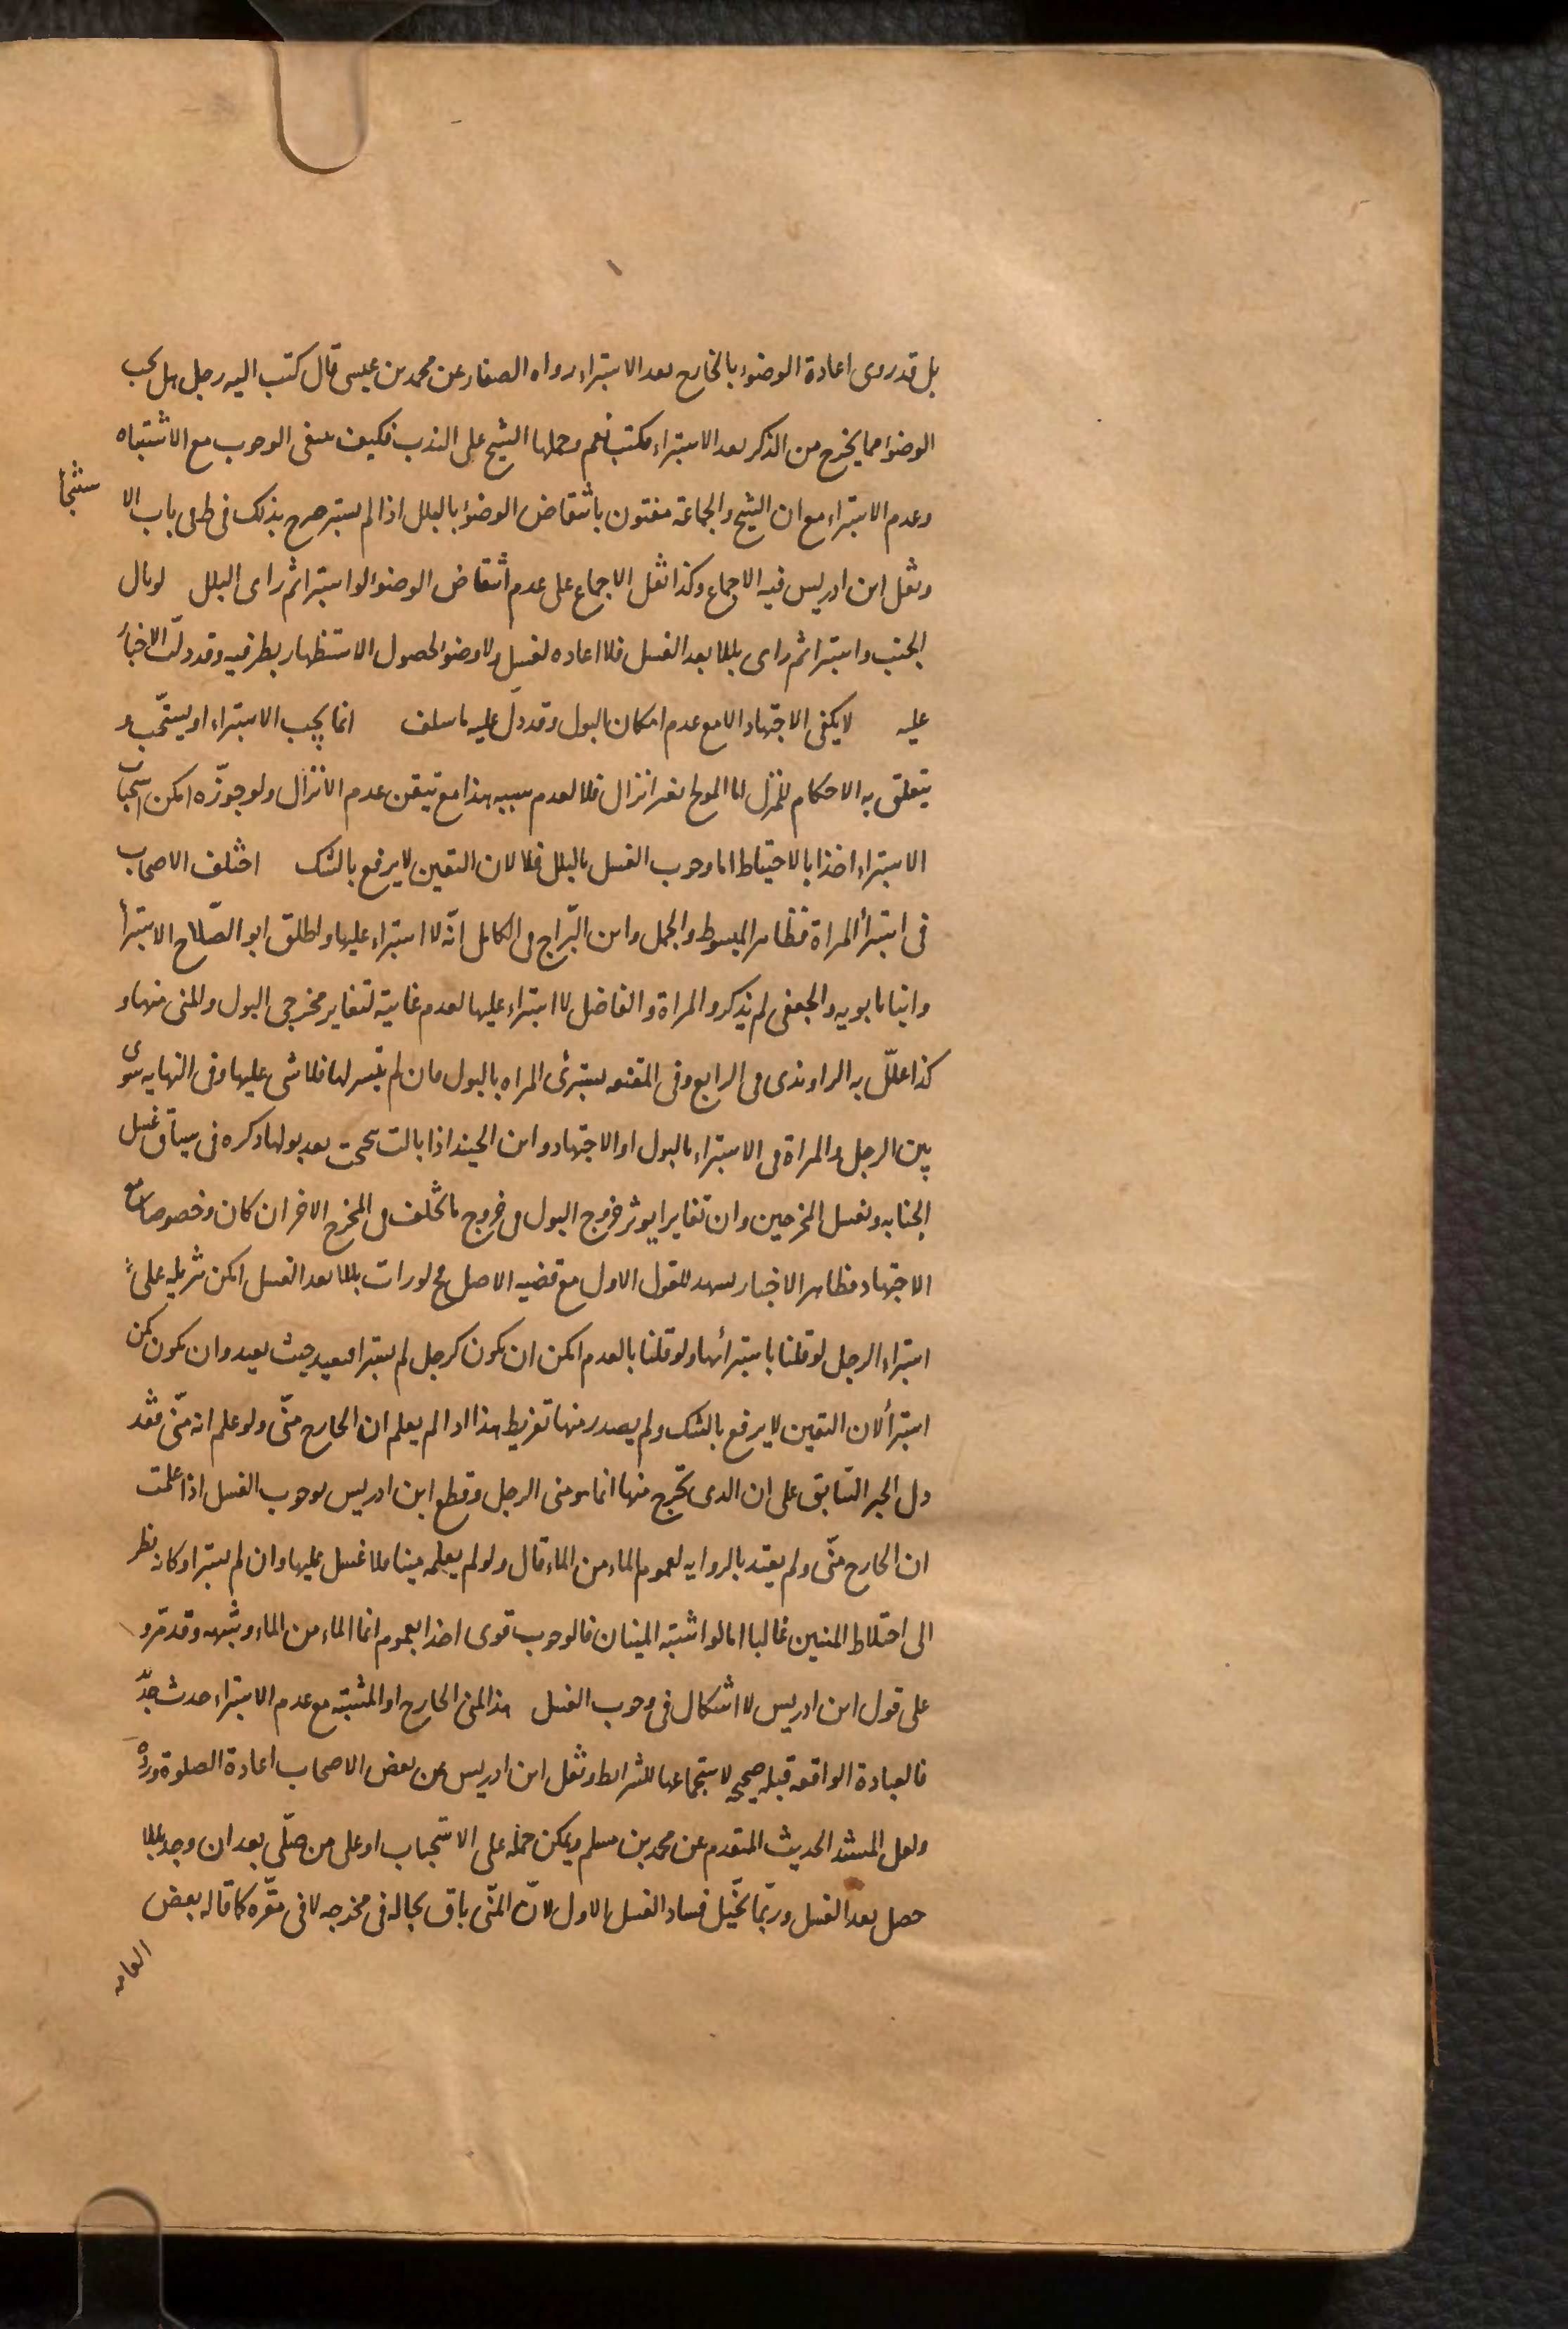 بل قد روى اعادة الوضوء بالخارج بعد الاستبراء رواه الصفار عن محمد بن عيسى قال كتب اليه رجل هل يجب
الوضوء مما يخرج من الذكر بعد الاستبراء فكتب نعم وحملها الشيخ على الندب فكيف ينفى الوجوب مع الاشتباه
وعدم الاستبراء مع ان الشيخ والجماعة مفتون بانتقاض الوضوء بالبلل اذا لم يستبر صرح بذلك فى ط فى باب الا
ستنجأ
ونقل ابن ادريس فيه الاجماع وكذا نقل الاجماع على عدم انتقاض الوضوء لو استبرا ثم راى البلل لو بال
الجنب واستبرا ثم راى بللا بعد الغسل فلا اعاده لغسل ولا وضوء لحصول الاستظهار بطرفيه وقد دلّت الاخبار
عليه لا يكفى الاجتهاد الا مع عدم امكان البول وقد دلّ عليه ما سلف انما يجب الاستبراء او يستحّب و
يتعلق به الاحكام للمنزل اما المولج بغير انزال فلا لعدم سببه هذا مع تيقن عدم الانزال ولو جوّزه امكن استحباب
الاستبراء اخذا بالاحتياط اما وجوب الغسل بالبلل فلا لان اليقين لا يرفع بالشك اختلف الاصحاب
فى استبرأ المراة فظاهر المبسوط والجمل وابن البّراج فى الكامل انّه لا استبراء عليها واطلق ابو الصّلاح الاستبرأ
وابنا بابويه والجعفى لم يذكروا المراة والفاضل لا استبراء عليها لعدم غايته لتغاير مخرجى البول والمنى منها و
كذا علّل به الراوندى فى الرابع وفى المقنعه يستبرئ المراه بالبول فان لم يتيسر لها فلا شى عليها وفى النهايه سوى
بين الرجل والمراة فى الاستبراء بالبول او الاجتهاد وابن الجنيد اذا بالت تنحنحت بعد بولها ذكره فى سياق غسل
الجنابه ولعل المخرجين وان تغايرا يوثر خروج البول فى خروج ما تخلف فى المخرج الاخر ان كان وخصوصا مع
الاجتهاد فظاهر الاخبار يشهد للقول الاول مع قضيه الاصل فح لو رات بللا بعد الغسل امكن تنزيله على
استبراء الرجل لو قلنا باستبرأئها ولو قلنا بالعدم امكن ان يكون كرجل لم يستبرا فيعيد حيث يعيد وان يكون كمن
استبرأ لان اليقين لا يرفع بالشك ولم يصدر منها تفريط هذا اذا لم يعلم ان الخارج منّى ولو علم انه منّى فقد
دل الخبر السّابق على ان الذى يخرج منها انما هو منى الرجل وقطع ابن ادريس بوجوب الغسل اذا علمت
ان الخارج منّى ولم يعتد بالروايه لعموم الماء من الماء قال ولو لم يعلمه منيا فلا غسل عليها وان لم يستبرا وكانه نظر
الى اختلاط المنيين غالبا اما لو اشتبه المنيان فالوجوب قوى اخذا بعموم انما الماء من الماء وشبهه وقد مّر و
على قول ابن ادريس لا اشكال فى وجوب الغسل هذا المنى الخارج او المشتبه مع عدم الاستبراء حدث جدّيد
فالعبادة الواقعه قبله صحيحه لاستجماعها للشرايط ونقل ابن ادريس عن بعض الاصحاب اعادة الصلوة وردّه
ولعل المستند الحديث المتقدم عن محمد بن مسلم ويمكن حمله على الاستحباب او على من صلّى بعد ان وجد بللا
حصل بعد الغسل وربّما تخيّل فساد الغسل الاول لانّ المنّى باق بحاله فى مخرجه لا فى مقّره كما قاله بعض
العامه